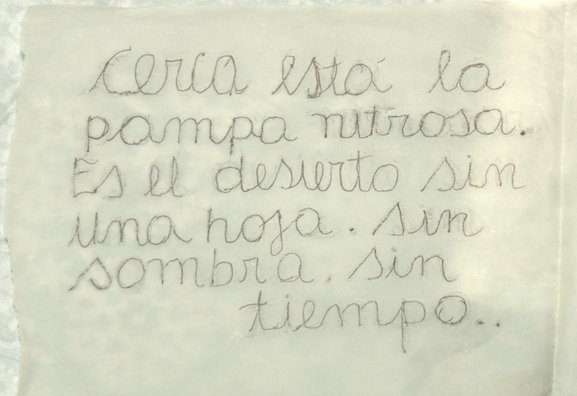 Cerca está la
pampa nitrosa.
Es el desierto sin
una hoja. sin
sombra. sin
tiempo..